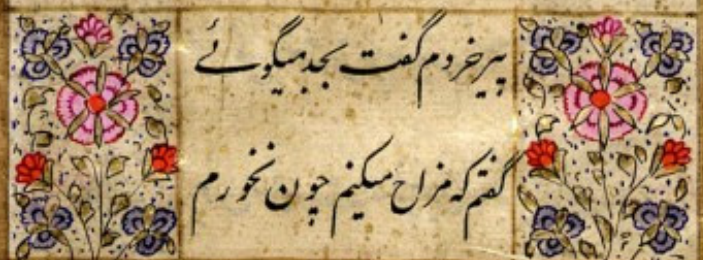 پیر خردم گفت بجد میگوئے
گفتم که مزاح میکنم چون نخورم